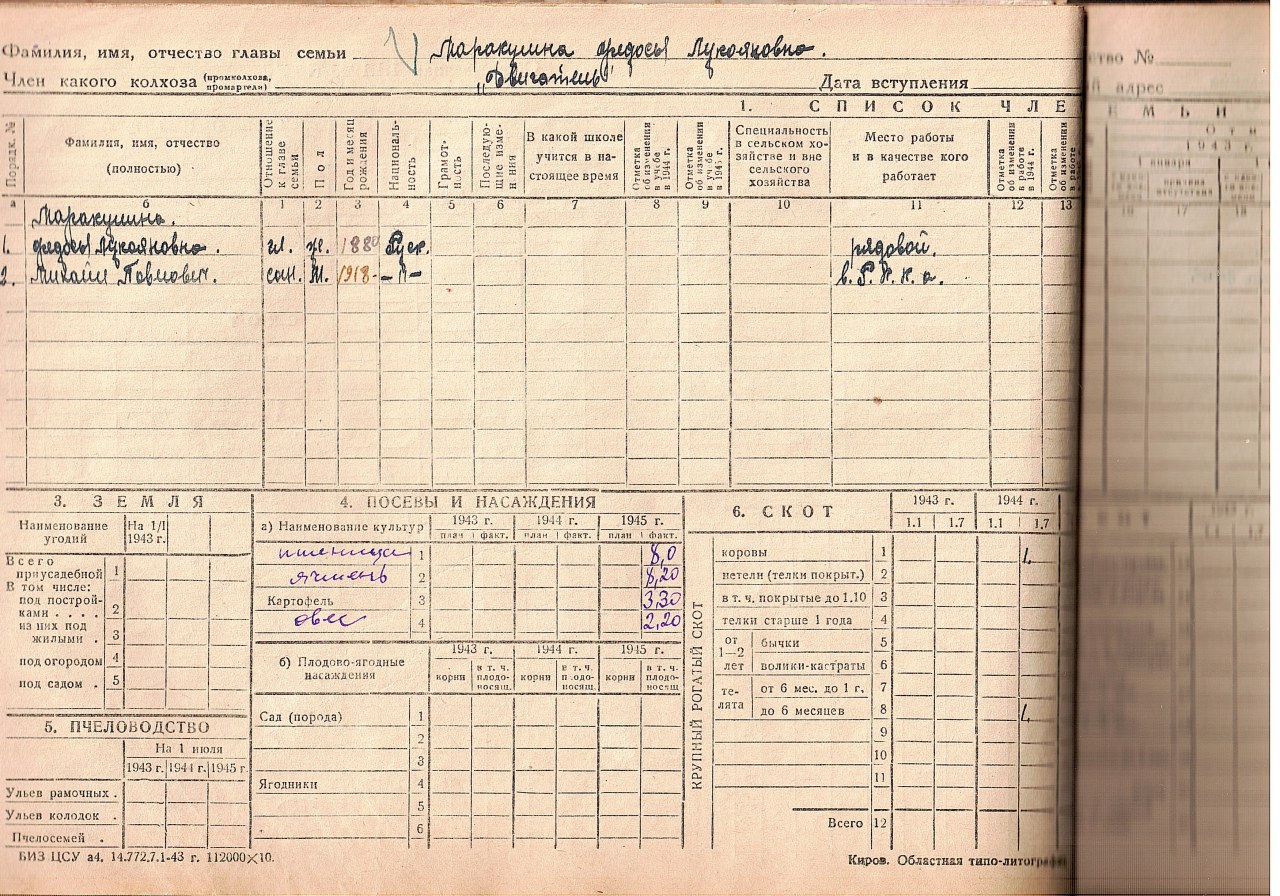 Фамилия, имя, отчество главы семьи Маракулина Федосья Лукояновна.
Член какого колхоза (промколхоза, промартели) „Двигатель" Дата вступления
1. СПИСОК ЧЛЕ
Порядк. №
Фамилия, имя, отчество (полностью)
Отношение к главе семьи
Пол
Год и месяц рождения
Националь-ность
Грамот-ность
Последую-щие изме-нения
В какой школе учится в на-стоящее время
Отметка об изменении в учебе в 1944 г.
Отметка об изменении в учебе в 1945 г.
Специальность в сельском хо-зяйстве и вне сельского хозяйства
Место работы и в качестве кого работает
Отметка об изменении в работе в 1944 г.
Отметка об изменении в работе
а б 1 2 3 4 5 6 7 8 9 10 11 12 13
Маракулина.
1. Федосья Лукояновна. гл. ж. 1880 Руск. рядовой.
2. Михаил Павлович. сын. М. 1918- -„- в. Р.К.К.а.
3. ЗЕМЛЯ
Наименование угодий На 1/I 1943 г.
Всего приусадебной 1
В том числе:
под построй-ками . . . . 2
из них под жилыми . 3
под огородом 4
под садом . 5
5. ПЧЕЛОВОДСТВО
На 1 июля
1943 г. 1944 г. 1945 г.
Ульев рамочных .
Ульев колодок .
Пчелосемей .
4. ПОСЕВЫ И НАСАЖДЕНИЯ
а) Наименование культур 1943 г. 1944 г. 1945 г.
план факт. план факт. план факт.
пшеница 1 8,0
ячмень 2 8,20
Картофель 3 3,30
овес 4 2,20
б) Плодово-ягодные насаждения 1943 г. 1944 г. 1945 г.
корни в т. ч. плодо-носящ. корни в т. ч. плодо-носящ. корни в т. ч. плодо-носящ
Сад (порода) 1
2
3
Ягодники 4
5
6
6. СКОТ 1943 г. 1944 г.
1.1 1.7 1.1 1.7
КРУПНЫЙ РОГАТЫЙ СКОТ
коровы 1 1.
нетели (телки покрыт.) 2
в т. ч. покрытые до 1.10 3
телки старше 1 года 4
от 1—2 лет бычки 5
волики-кастраты 6
те-лята от 6 мес. до 1 г. 7
до 6 месяцев 8 1.
9
10
11
Всего 12
БИЗ ЦСУ а4. 14.772.7.1-43 г. 112000×10.
Киров. Областная типо-литограф
ство №
й адрес
ЕМЬИ
1943 г.
января
16 17 18